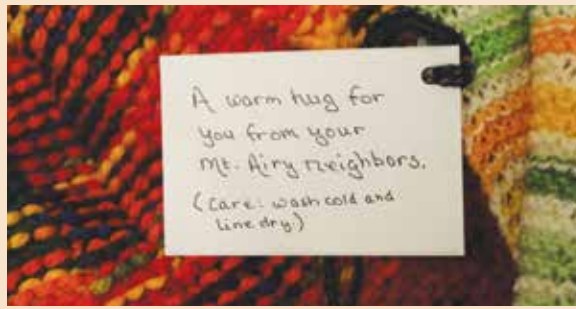 A warm hug for
you from your
Mt. Airy neighbors.
(care: wash cold and
line dry.)